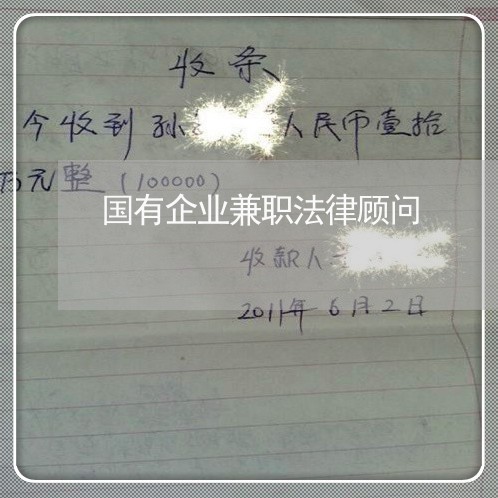 收条
今收到孙 人民币壹拾
万元整(100000)
国有企业兼职法律顾问
收款人
2011年6月2日